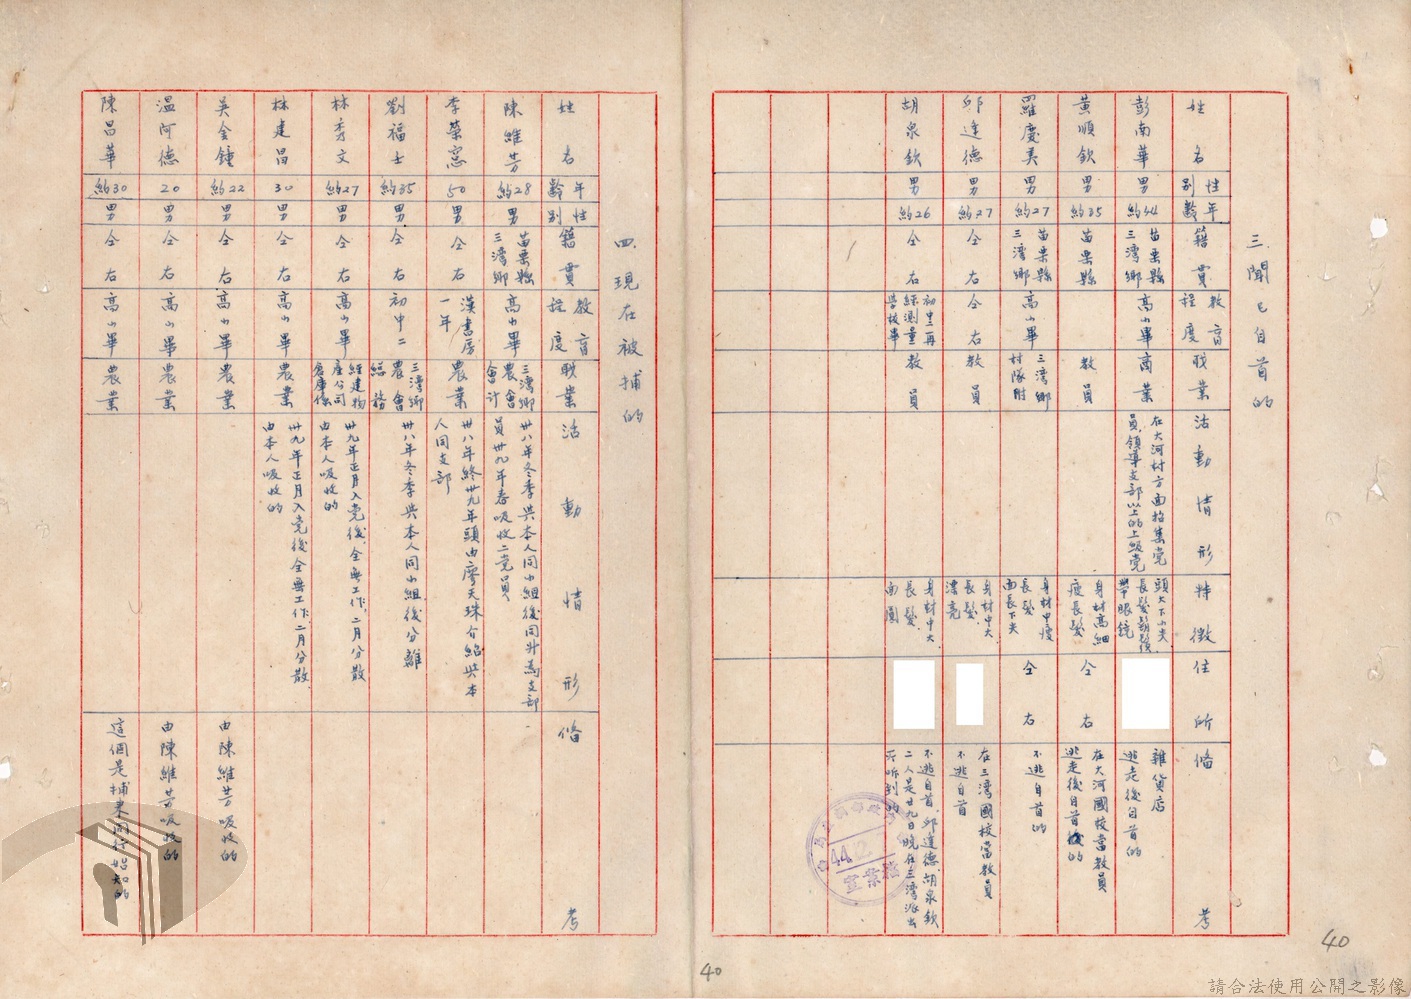 三、聞已自首的
姓名
性別
年齡
籍貫
教育程度
職業
活動情形
特徵
住所
備考
彭南華
男
約44
苗栗縣
三灣鄉
高小畢
商業
在大河村方面招集党
員領導支部以上的上級党
頭大下小尖
長髮鬍鬚
帶眼鏡
雜貨店
逃走後自首的
黃順欽
男
約35
苗栗縣
教員
身材高細
瘦長髮
仝右
在大河國校當教員
逃走後自首的
羅慶美
男
約27
苗栗縣
三灣鄉
高小畢
三灣鄉
村隊附
身材中瘦
長髮
面長下尖
仝右
不逃自首的
邱逢德
男
約27
仝右
仝右
教員
身材中大
長髮
漂亮
在三灣國校當教員
不逃自首
胡泉欽
男
約26
仝右
初中二再
經測量
學校畢
教員
身材中大
長髮
面圓
不逃自首、邱逢德、胡泉欽
二人是廿九日晚在三灣派出
所听到的
44.12.
檔案室
四、現在被捕的
姓名
年齡
性別
籍貫
教育程度
職業
活動情形
備考
陳維芳
約28
男
苗栗縣
三灣鄉
高小畢
三灣鄉
農會
會計
卅八年冬季與本人同小組後同升為支部
員卅九年春吸收二党員
李榮窓
50
男
仝右
漢書房
一年
農業
卅八年終卅九年頭由廖天珠介紹與本
人同支部
劉福士
約35
男
仝右
初中二
三灣鄉
農會
總務
卅八年冬季與本人同小組後分離
林秀文
約27
男
仝右
高小畢
經建物
產公司
倉庫係
卅九年正月入党後、全無工作、二月分散
由本人吸收的
林建昌
30
男
仝右
高小畢
農業
卅九年正月入党後全無工作二月分散
由本人吸收的
吳金鐘
約22
男
仝右
高小畢
農業
由陳維芳吸收的
温阿德
20
男
仝右
高小畢
農業
由陳維芳吸收的
陳昌華
約30
男
仝右
高小畢
農業
這個是捕來同行始知的
40
40
請合法使用公開之影像